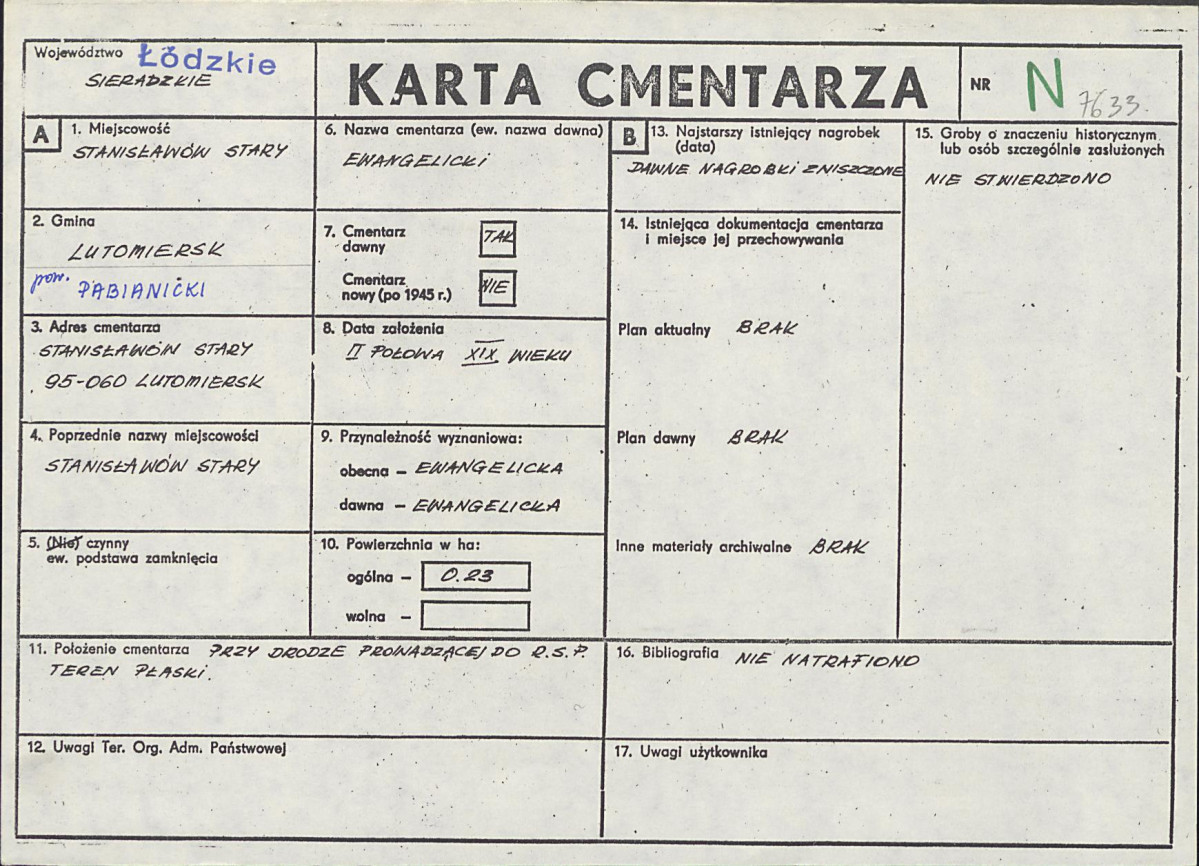 Województwo Łódzkie
SIERADZKIE
KARTA CMENTARZA
NR N 7633.
A
1. Miejscowość
STANISŁAWÓW STARY
2. Gmina
LUTOMIERSK
pow. PABIANICKI
3. Adres cmentarza
STANISŁAWÓW STARY
95-060 LUTOMIERSK
4. Poprzednie nazwy miejscowości
STANISŁAWÓW STARY
5. (Nie) czynny
ew. podstawa zamknięcia
6. Nazwa cmentarza (ew. nazwa dawna)
EWANGELICKI
7. Cmentarz
dawny TAK
Cmentarz
nowy (po 1945 r.) NIE
8. Data założenia
II POŁOWA XIX WIEKU
9. Przynależność wyznaniowa:
obecna – EWANGELICKA
dawna – EWANGELICKA
10. Powierzchnia w ha:
ogólna – 0.23
wolna –
11. Położenie cmentarza PRZY DRODZE PROWADZĄCEJ DO R.S.P.
TEREN PŁASKI.
12. Uwagi Ter. Org. Adm. Państwowej
B
13. Najstarszy istniejący nagrobek
(data)
DAWNE NAGROBKI ZNISZCZONE
14. Istniejąca dokumentacja cmentarza
i miejsce jej przechowywania
Plan aktualny BRAK
Plan dawny BRAK
Inne materiały archiwalne BRAK
15. Groby o znaczeniu historycznym
lub osób szczególnie zasłużonych
NIE STWIERDZONO
16. Bibliografia NIE NATRAFIONO
17. Uwagi użytkownika